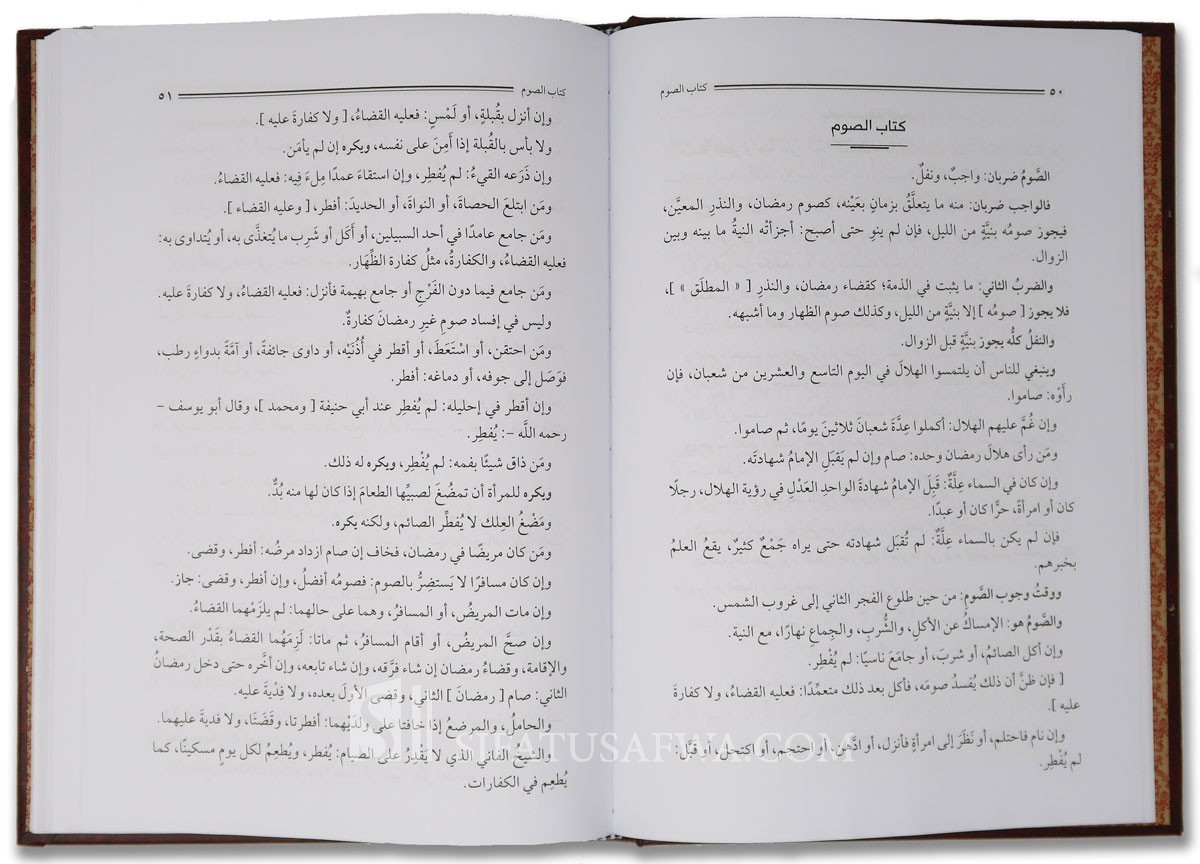 كتاب الصوم ٥٠
كتاب الصوم
الصَّومُ ضربان: واجبٌ، ونفلٌ.
فالواجب ضربان: منه ما يتعلَّقُ بزمانٍ بعَيْنه، كصوم رمضان، والنذرِ المعيَّن،
فيجوز صومُه بنيَّةٍ من الليل، فإن لم ينوِ حتى أصبح: أجزأتْه النيةُ ما بينه وبين
الزوال.
والضربُ الثاني: ما يثبت في الذمة؛ كقضاء رمضان، والنذرِ [ « المطلَق » ]،
فلا يجوز [ صومُه ] إلا بنيَّةٍ من الليل، وكذلك صوم الظهار وما أشبهه.
والنفلُ كلُّه يجوز بنيَّةٍ قبل الزوال.
وينبغي للناس أن يلتمسوا الهلالَ في اليوم التاسع والعشرين من شعبان، فإن
رأَوْه: صاموا.
وإن غُمَّ عليهم الهلال: أكملوا عِدَّةَ شعبانَ ثلاثينَ يومًا، ثم صاموا.
ومَن رأى هلالَ رمضان وحده: صام وإن لم يَقبَلِ الإمامُ شهادتَه.
وإن كان في السماء عِلَّةٌ: قَبِلَ الإمامُ شهادةَ الواحدِ العَدْلِ في رؤية الهلال، رجلًا
كان أو امرأةً، حرًّا كان أو عبدًا.
فإن لم يكن بالسماء عِلَّةٌ: لم تُقبَل شهادته حتى يراه جَمْعٌ كثيرٌ، يقعُ العلمُ
بخبرهم.
ووقتُ وجوب الصَّومِ: من حين طلوع الفجر الثاني إلى غروب الشمس.
والصَّومُ هو: الإمساكُ عن الأكلِ، والشُّربِ، والجِماعِ نهارًا، مع النية.
وإن أكل الصائمُ، أو شربَ، أو جامَعَ ناسيًا: لم يُفْطِر.
[ فإن ظنَّ أن ذلك يُفسدُ صومَه، فأكل بعد ذلك متعمِّدًا: فعليه القضاءُ، ولا كفارةَ
عليه ].
وإن نام فاحتلم، أو نَظَرَ إلى امرأةٍ فأنزل، أو ادَّهنَ، أو احتجم، أو اكتحل، أو قبَّل:
لم يُفْطِر.
كتاب الصوم ٥١
وإن أنزل بقُبلةٍ، أو لَمْسٍ: فعليه القضاءُ، [ ولا كفارةَ عليه ].
ولا بأس بالقُبلة إذا أَمِنَ على نفسه، ويكره إن لم يأمَن.
وإن ذَرَعه القيءُ: لم يُفطِر، وإن استقاءَ عمدًا مِلءَ فِيه: فعليه القضاءُ.
ومَن ابتلعَ الحصاةَ، أو النواةَ، أو الحديدَ: أفطر، [ وعليه القضاء ].
ومَن جامع عامدًا في أحد السبيلين، أو أَكَل أو شَرِب ما يُتغذَّى به، أو يُتداوى به:
فعليه القضاءُ، والكفارةُ، مثلُ كفارة الظِّهَار.
ومَن جامع فيما دون الفَرْجِ أو جامع بهيمة فأنزل: فعليه القضاءُ، ولا كفارةَ عليه.
وليس في إفساد صومِ غيرِ رمضانَ كفارةٌ.
ومَن احتقن، أو اسْتَعَطَ، أو أقطر في أُذُنَيْه، أو داوى جائفةً، أو آمَّةً بدواءٍ رطب،
فوَصَل إلى جوفه، أو دماغه: أفطر.
وإن أقطر في إحليله: لم يُفطِر عند أبي حنيفة [ ومحمد ]، وقال أبو يوسف –
رحمه اللَّه –: يُفْطِر.
ومَن ذاق شيئًا بفمه: لم يُفْطِر، ويكره له ذلك.
ويكره للمرأة أن تمضُغَ لصبيِّها الطعامَ إذا كان لها منه بُدٌّ.
ومَضْغُ العِلك لا يُفطِّر الصائم، ولكنه يكره.
ومَن كان مريضًا في رمضان، فخاف إن صام ازداد مرضُه: أفطر، وقضى.
وإن كان مسافرًا لا يَستضِرُّ بالصوم: فصومُه أفضلُ، وإن أفطر، وقضى: جاز.
وإن مات المريضُ، أو المسافرُ، وهما على حالهما: لم يلزَمْهما القضاءُ.
وإن صحَّ المريضُ، أو أقام المسافرُ، ثم ماتا: لَزِمَهُما القضاءُ بقَدْر الصحة،
والإقامة، وقضاءُ رمضان إن شاء فرَّقه، وإن شاء تابعه، وإن أخَّره حتى دخل رمضانُ
الثاني: صام [ رمضانَ ] الثاني، وقضى الأولَ بعده، ولا فدْيةَ عليه.
والحاملُ، والمرضعُ إذا خافتا على ولدَيْهما: أفطرتا، وقَضَتَا، ولا فديةَ عليهما.
والشيخُ الفاني الذي لا يَقدِرُ على الصيام: يُفطر، ويُطعِمُ لكل يومٍ مسكينًا، كما
يُطعِم في الكفارات.
SIFATUSAFWA.COM